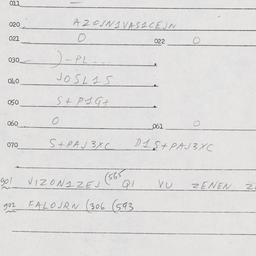 011
020 AZOJN1VAS1CEJN
021 0 022 0
030 )-PL...
040 JOSL1S
050 S+P1G+
060 0 061 0
070 S+PAJ3XC D1S+PAJ3XC
901 VIZON1ZEJ (565 Q1 VU ZENEN
902 FALOJRN (306 (593